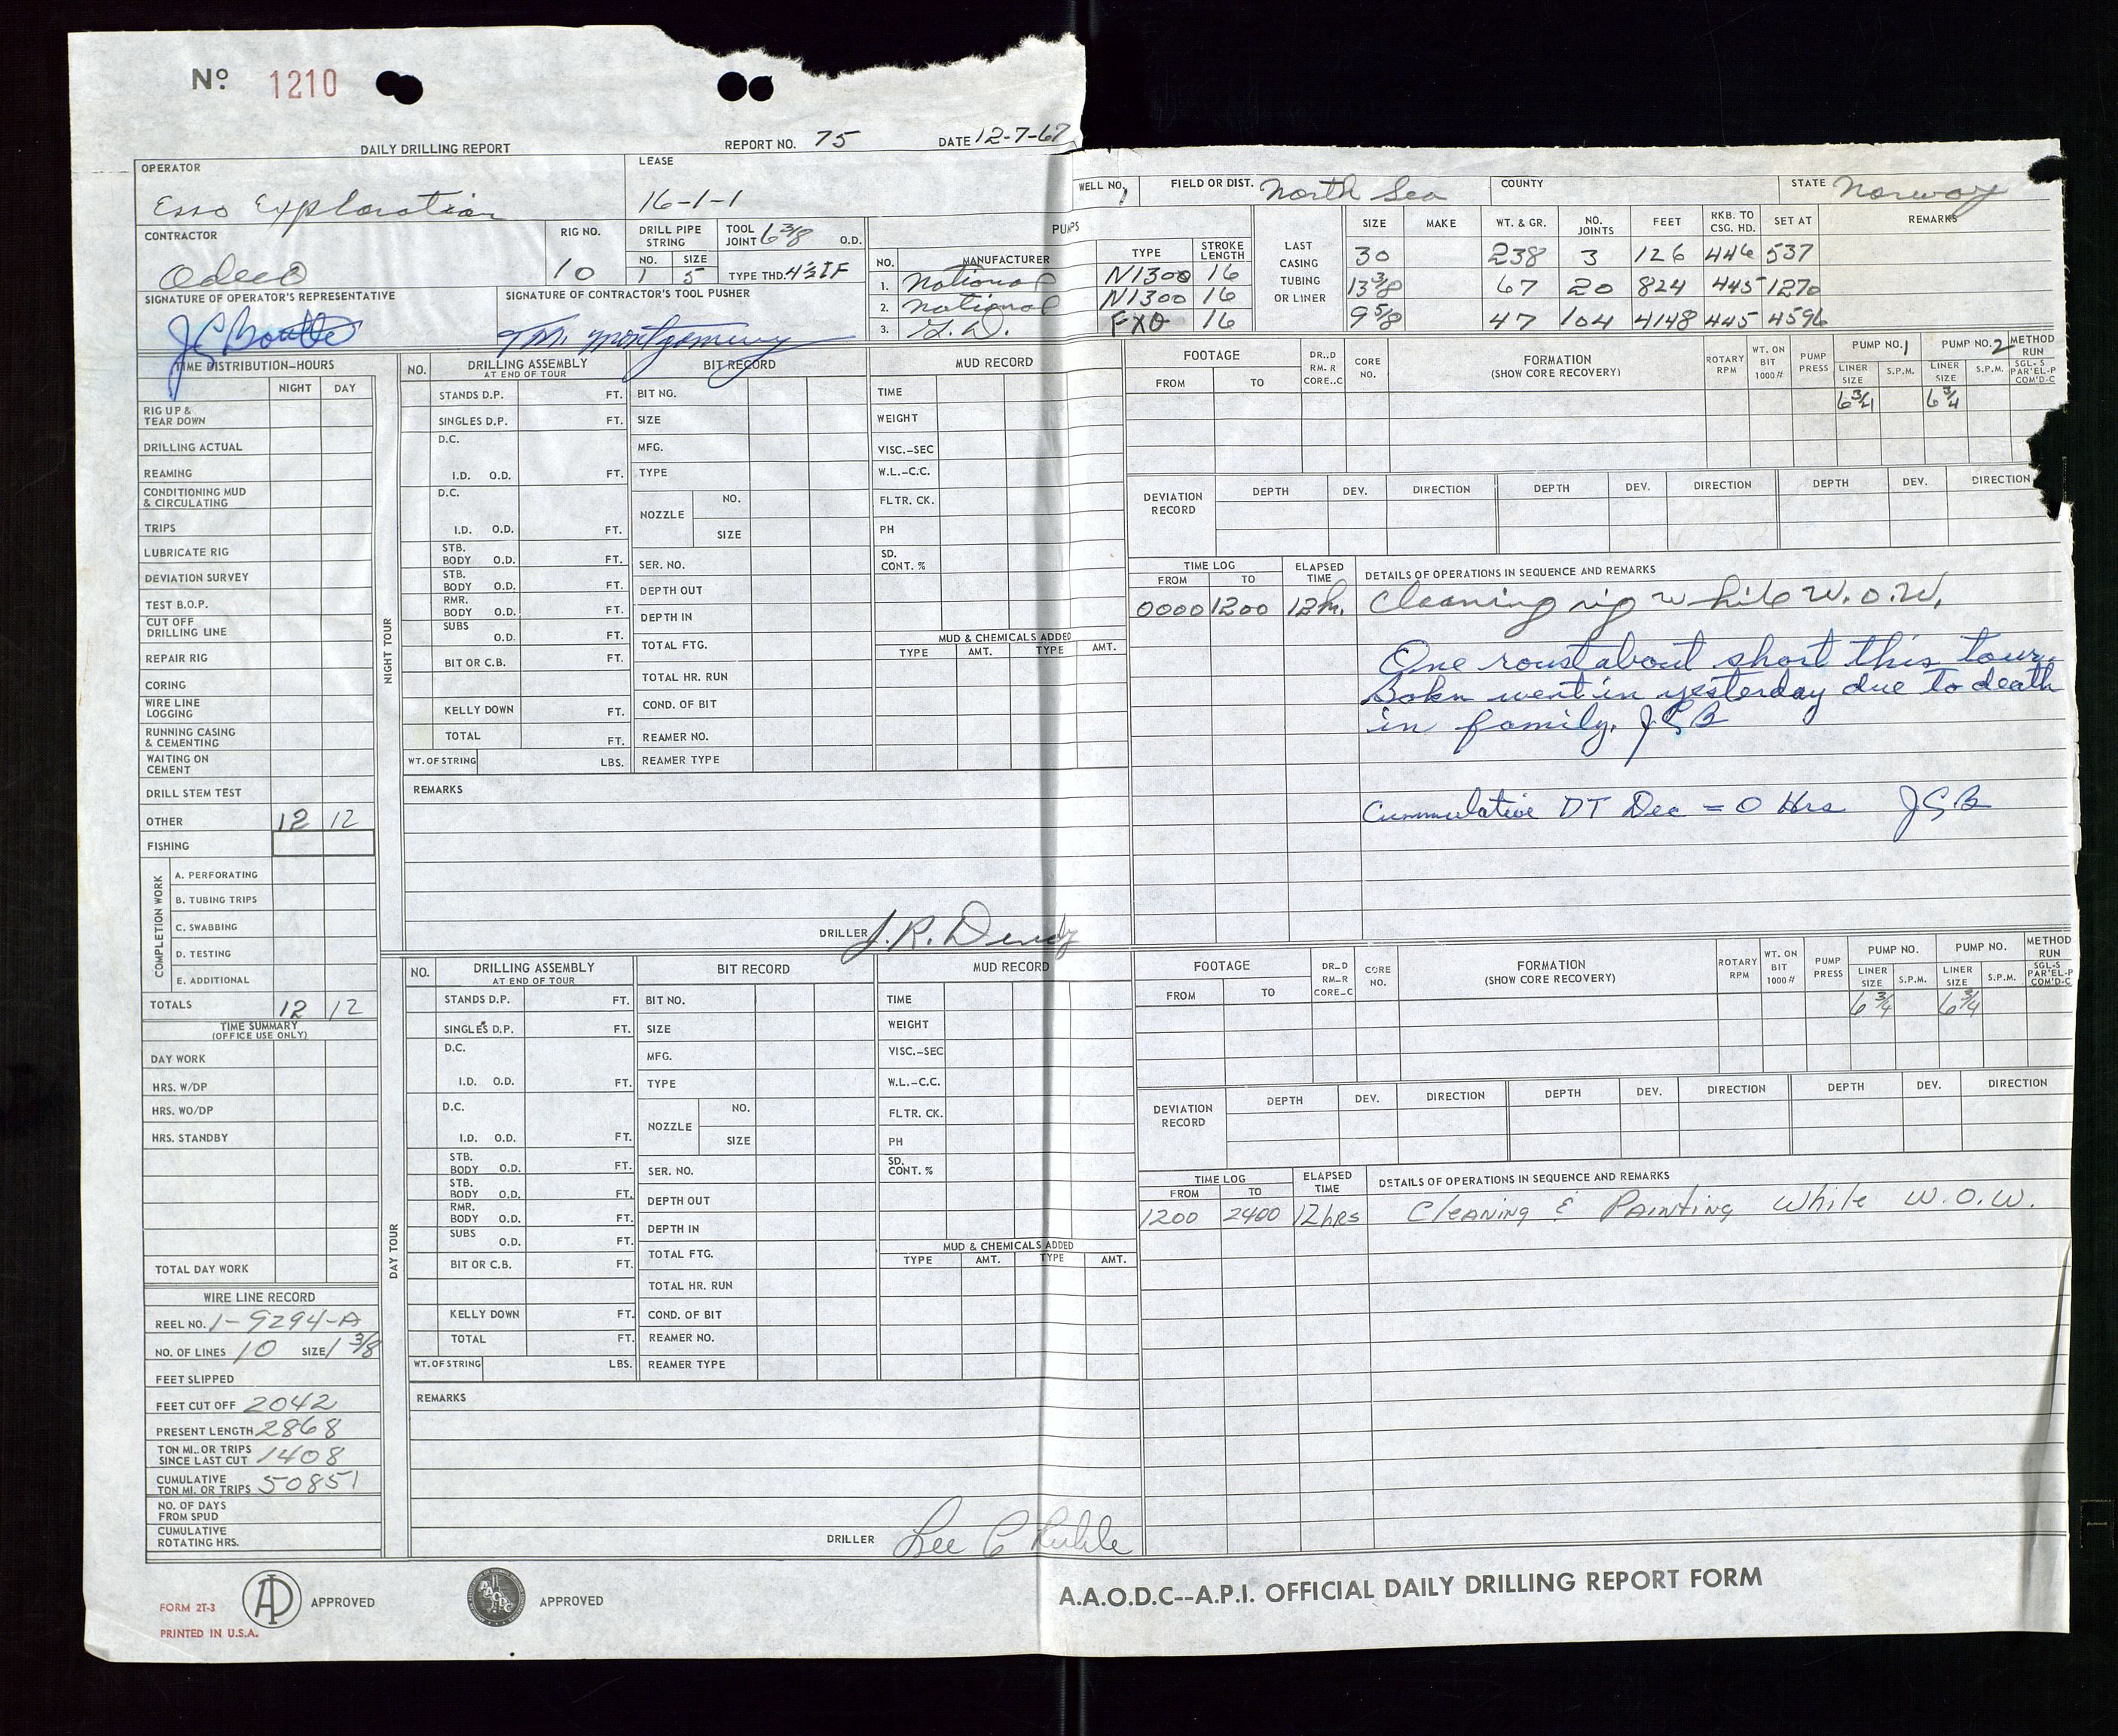 No 1210
DAILY DRILLING REPORT REPORT NO. 75 DATE 12-7-67
OPERATOR LEASE WELL NO. 1 FIELD OR DIST. North Sea COUNTY STATE Norway
Esso Exploration 16-1-1
CONTRACTOR RIG NO. DRILL PIPE STRING TOOL JOINT 6 3/8 O.D. PUMPS
Odeco 10 NO. SIZE 1 5 TYPE THD. 4½ IF
NO. MANUFACTURER TYPE STROKE LENGTH
1. National N1300 16
2. National N1300 16
3. G.D. FXO 16
LAST CASING TUBING OR LINER SIZE MAKE WT. & GR. NO. JOINTS FEET RKB. TO CSG. HD. SET AT REMARKS
30 238 3 126 446 537
13 3/8 67 20 824 445 1270
9 5/8 47 104 4148 445 4596
SIGNATURE OF OPERATOR'S REPRESENTATIVE SIGNATURE OF CONTRACTOR'S TOOL PUSHER
T.M. Montgomery
TIME DISTRIBUTION-HOURS
NIGHT DAY
RIG UP & TEAR DOWN
DRILLING ACTUAL
REAMING
CONDITIONING MUD & CIRCULATING
TRIPS
LUBRICATE RIG
DEVIATION SURVEY
TEST B.O.P.
CUT OFF DRILLING LINE
REPAIR RIG
CORING
WIRE LINE LOGGING
RUNNING CASING & CEMENTING
WAITING ON CEMENT
DRILL STEM TEST
OTHER 12 12
FISHING
COMPLETION WORK
A. PERFORATING
B. TUBING TRIPS
C. SWABBING
D. TESTING
E. ADDITIONAL
TOTALS 12 12
TIME SUMMARY
(OFFICE USE ONLY)
DAY WORK
HRS. W/DP
HRS. WO/DP
HRS. STANDBY
TOTAL DAY WORK
WIRE LINE RECORD
REEL NO. 1-9294-A
NO. OF LINES 10 SIZE 1 3/8
FEET SLIPPED
FEET CUT OFF 2042
PRESENT LENGTH 2868
TON MI. OR TRIPS SINCE LAST CUT 1408
CUMULATIVE TON MI. OR TRIPS 50851
NO. OF DAYS FROM SPUD
CUMULATIVE ROTATING HRS.
NIGHT TOUR
NO. DRILLING ASSEMBLY AT END OF TOUR BIT RECORD MUD RECORD
STANDS D.P. FT. BIT NO. TIME
SINGLES D.P. FT. SIZE WEIGHT
D.C. MFG. VISC.-SEC
I.D. O.D. FT. TYPE W.L.-C.C.
D.C. NOZZLE NO. FLTR. CK.
I.D. O.D. FT. SIZE PH
STB. BODY O.D. FT. SER. NO. SD. CONT. %
STB. BODY O.D. FT. DEPTH OUT
RMR. BODY O.D. FT. DEPTH IN
SUBS O.D. FT. TOTAL FTG. MUD & CHEMICALS ADDED
BIT OR C.B. FT. TOTAL HR. RUN TYPE AMT. TYPE AMT.
KELLY DOWN FT. COND. OF BIT
TOTAL FT. REAMER NO.
WT. OF STRING LBS. REAMER TYPE
REMARKS
DRILLER J.R. Dendy
FOOTAGE FROM TO DR..D RM.R CORE..C CORE NO. FORMATION (SHOW CORE RECOVERY) ROTARY RPM WT. ON BIT 1000# PUMP PRESS PUMP NO. 1 LINER SIZE S.P.M. PUMP NO. 2 LINER SIZE S.P.M. METHOD RUN SGL-S PAR'EL-P COM'D-C
6¾ 6¾
DEVIATION RECORD DEPTH DEV. DIRECTION DEPTH DEV. DIRECTION DEPTH DEV. DIRECTION
TIME LOG FROM TO ELAPSED TIME DETAILS OF OPERATIONS IN SEQUENCE AND REMARKS
0000 1200 12 hr. Cleaning rig while W.O.W.
One roustabout short this tour.
Bokn went in yesterday due to death
in family. JGB
Cummulative DT Dec = 0 Hrs JGB
DAY TOUR
NO. DRILLING ASSEMBLY AT END OF TOUR BIT RECORD MUD RECORD
STANDS D.P. FT. BIT NO. TIME
SINGLES D.P. FT. SIZE WEIGHT
D.C. MFG. VISC.-SEC
I.D. O.D. FT. TYPE W.L.-C.C.
D.C. NOZZLE NO. FLTR. CK.
I.D. O.D. FT. SIZE PH
STB. BODY O.D. FT. SER. NO. SD. CONT. %
STB. BODY O.D. FT. DEPTH OUT
RMR. BODY O.D. FT. DEPTH IN
SUBS O.D. FT. TOTAL FTG. MUD & CHEMICALS ADDED
BIT OR C.B. FT. TOTAL HR. RUN TYPE AMT. TYPE AMT.
KELLY DOWN FT. COND. OF BIT
TOTAL FT. REAMER NO.
WT. OF STRING LBS. REAMER TYPE
REMARKS
DRILLER Lee C
FOOTAGE FROM TO DR..D RM..R CORE..C CORE NO. FORMATION (SHOW CORE RECOVERY) ROTARY RPM WT. ON BIT 1000# PUMP PRESS PUMP NO. LINER SIZE S.P.M. PUMP NO. LINER SIZE S.P.M. METHOD RUN SGL-S PAR'EL-P COM'D-C
6¾ 6¾
DEVIATION RECORD DEPTH DEV. DIRECTION DEPTH DEV. DIRECTION DEPTH DEV. DIRECTION
TIME LOG FROM TO ELAPSED TIME DETAILS OF OPERATIONS IN SEQUENCE AND REMARKS
1200 2400 12 hrs Cleaning & Painting while W.O.W.
FORM 2T-3
PRINTED IN U.S.A.
APPROVED
AAODC
APPROVED
A.A.O.D.C--A.P.I. OFFICIAL DAILY DRILLING REPORT FORM